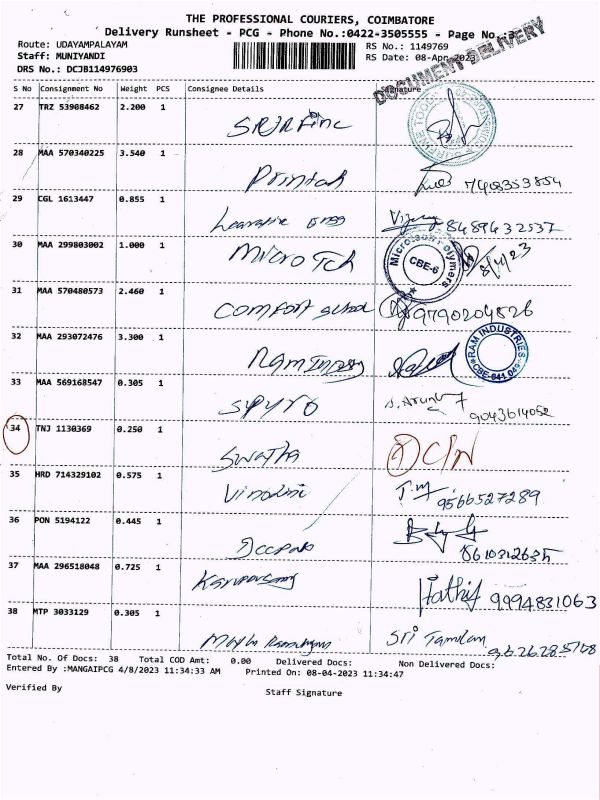 THE PROFESSIONAL COURIERS, COIMBATORE
Delivery Runsheet - PCG - Phone No.:0422-3505555 - Page No.
Route: UDAYAMPALAYAM RS No.: 1149769
Staff: MUNIYANDI RS Date: 08-Apr-2023
DRS No.: DCJB114976903
DOCUMENT DELIVERY
S No Consignment No Weight PCS Consignee Details Signature
27 TRZ 53908462 2.200 1
28 MAA 570340225 3.540 1
7408353854
29 CGL 1613447 0.855 1
Vijay 8489432537
30 MAA 299803002 1.000 1
MICRO Tch
Polymers CBE-6 8/4/23
31 MAA 570480573 2.460 1
COMFORT 9790204826
32 MAA 293072476 3.300 1
RAM INDUSTRIES
33 MAA 569168547 0.305 1
SPYRO
9043614052
34 TNJ 1130369 0.250 1
Swatha
35 HRD 714329102 0.575 1
Vinodini T.M 9566527289
36 PON 5194122 0.445 1
Deepak 8610312635
37 MAA 296518048 0.725 1
9994831063
38 MTP 3033129 0.305 1
Sri Tamilan
Total No. Of Docs: 38 Total COD Amt: 0.00 Delivered Docs: Non Delivered Docs:
Entered By :MANGAIPCG 4/8/2023 11:34:33 AM Printed On: 08-04-2023 11:34:47
Verified By Staff Signature